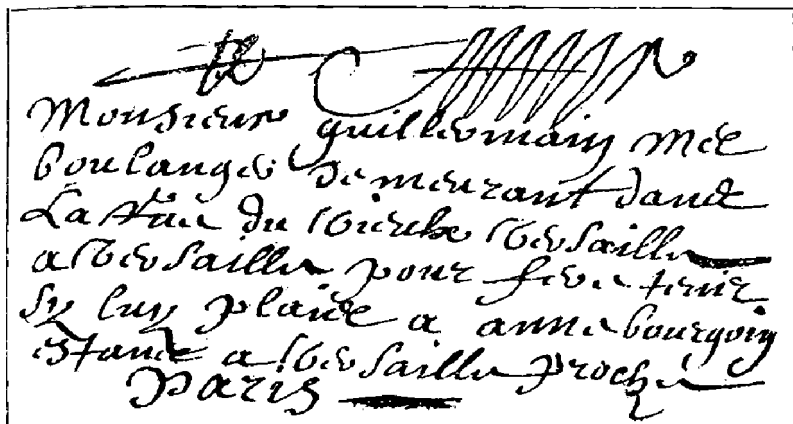 Monsieur guillermain Mee
boulanger demeurant dans
La Rue du Vieulx Versaille
a Versaille pour fere tenir
sy luy plaict a anne bourgoin
estant a Versaille proche
Paris